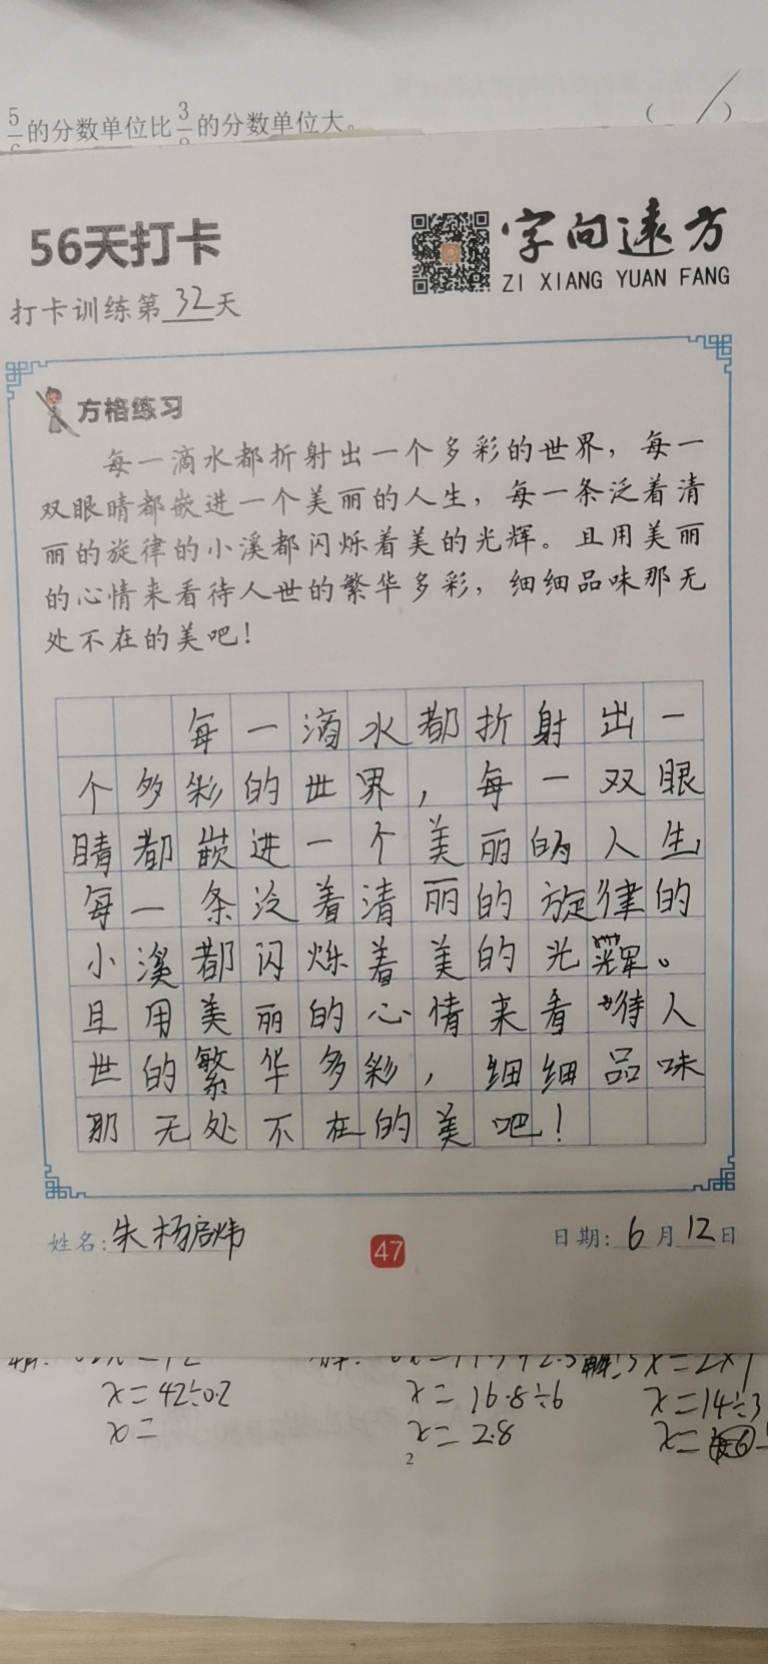 5 3
的分数单位比 的分数单位大。 ( / )
56天打卡
字向远方
ZI XIANG YUAN FANG
打卡训练第32天
方格练习
每一滴水都折射出一个多彩的世界，每一
双眼睛都嵌进一个美丽的人生，每一条泛着清
丽的旋律的小溪都闪烁着美的光辉。且用美丽
的心情来看待人世的繁华多彩，细细品味那无
处不在的美吧！
每一滴水都折射出一
个多彩的世界，每一双眼
睛都嵌进一个美丽的人生，
每一条泛着清丽的旋律的
小溪都闪烁着美的光辉。
且用美丽的心情来看待人
世的繁华多彩，细细品味
那无处不在的美吧！
姓名：朱杨启炜
47
日期：6月12日
x=42÷0.2 x=16.8÷6 x=14÷3
x= x=2.8 x=
2